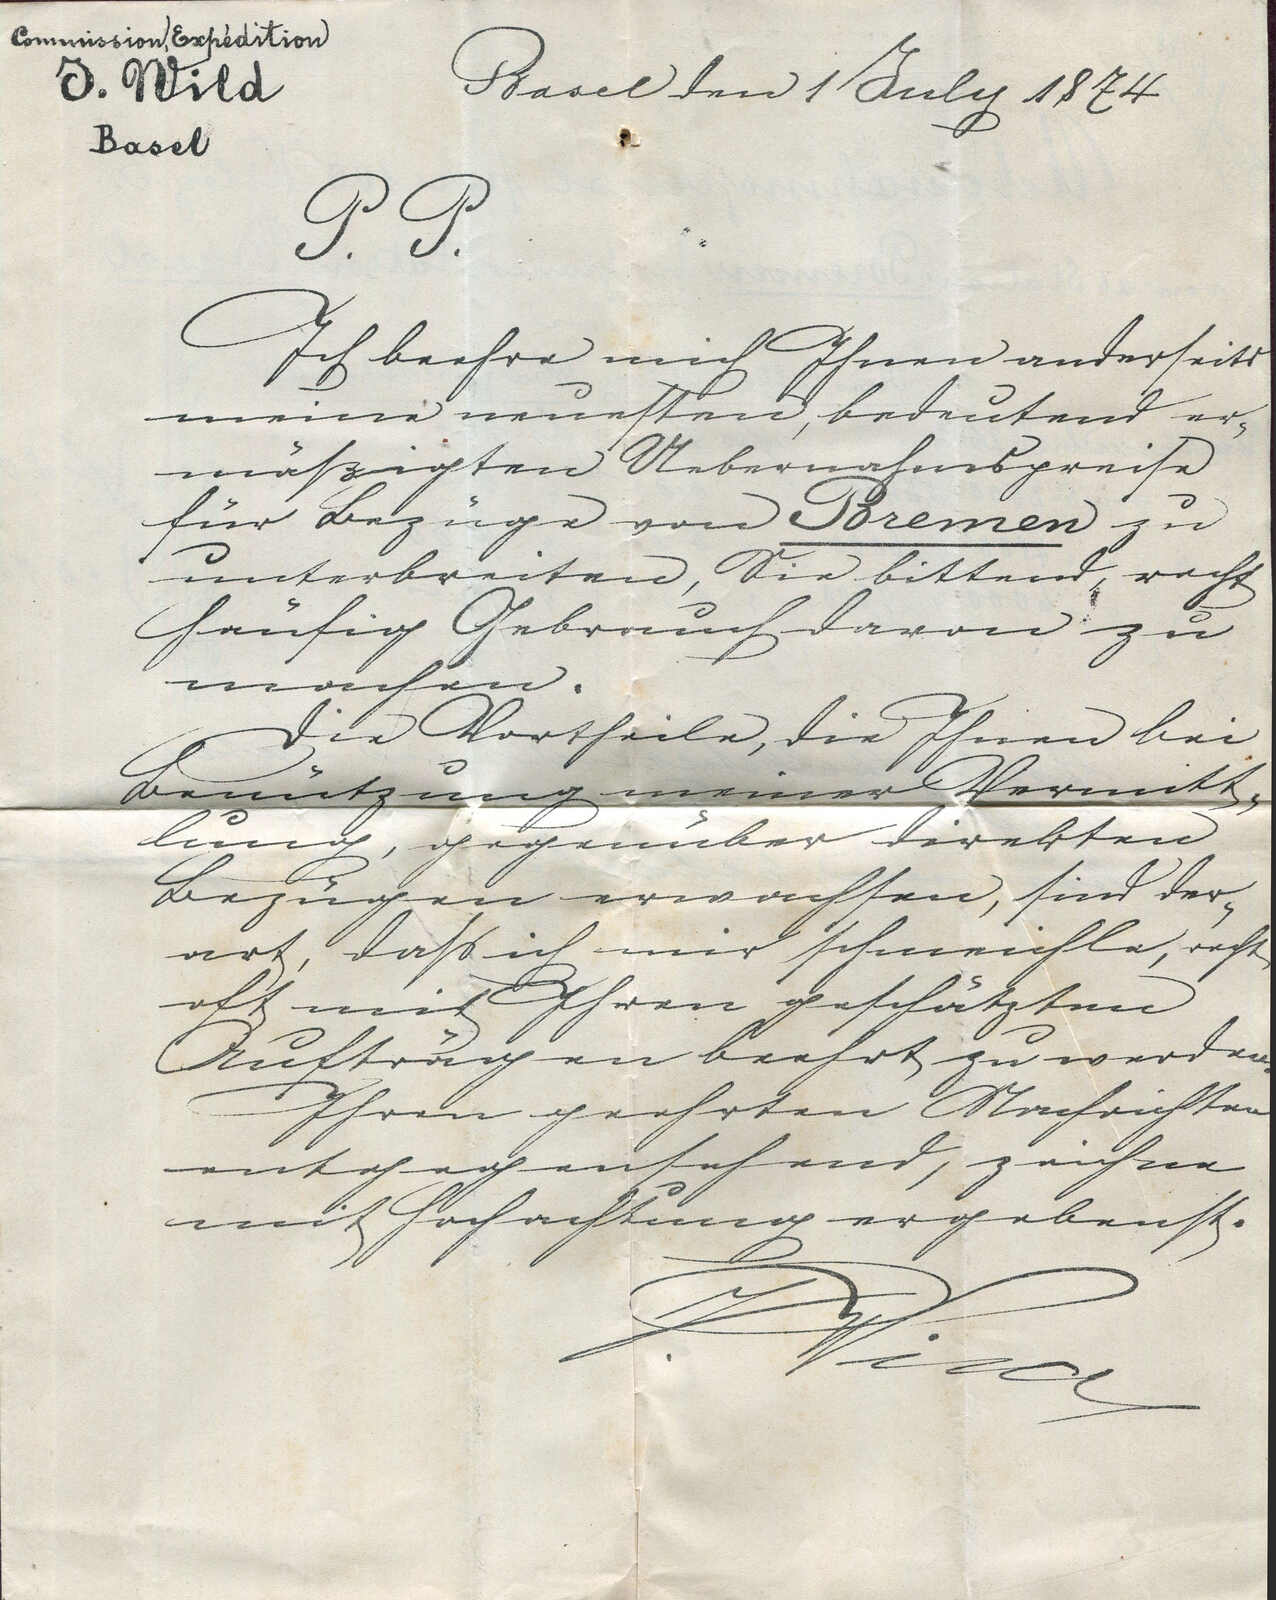 Commission, Expédition
J. Wild
Basel
Basel den 1 July 1874
P. P.
Ich beehre mich Ihnen anderseits
meine neuesten, bedeutend er-
mäßzigten Uebernahmspreise
für Bezüge von Bremen zu
unterbreiten, Sie bittend, recht
häufig Gebrauch davon zu
machen.
Die Vortheile, die Ihnen bei
Benützung meiner Vermitt-
lung, gegenüber direkten
Bezügen erwachsen, sind der-
art, dass ich mir schmeichle, recht
oft mit Ihren geschätzten
Aufträgen beehrt zu werden.
Ihren geehrten Nachrichten
entgegensehend, zeichne
mit Hochachtung ergebenst.
J. Wild